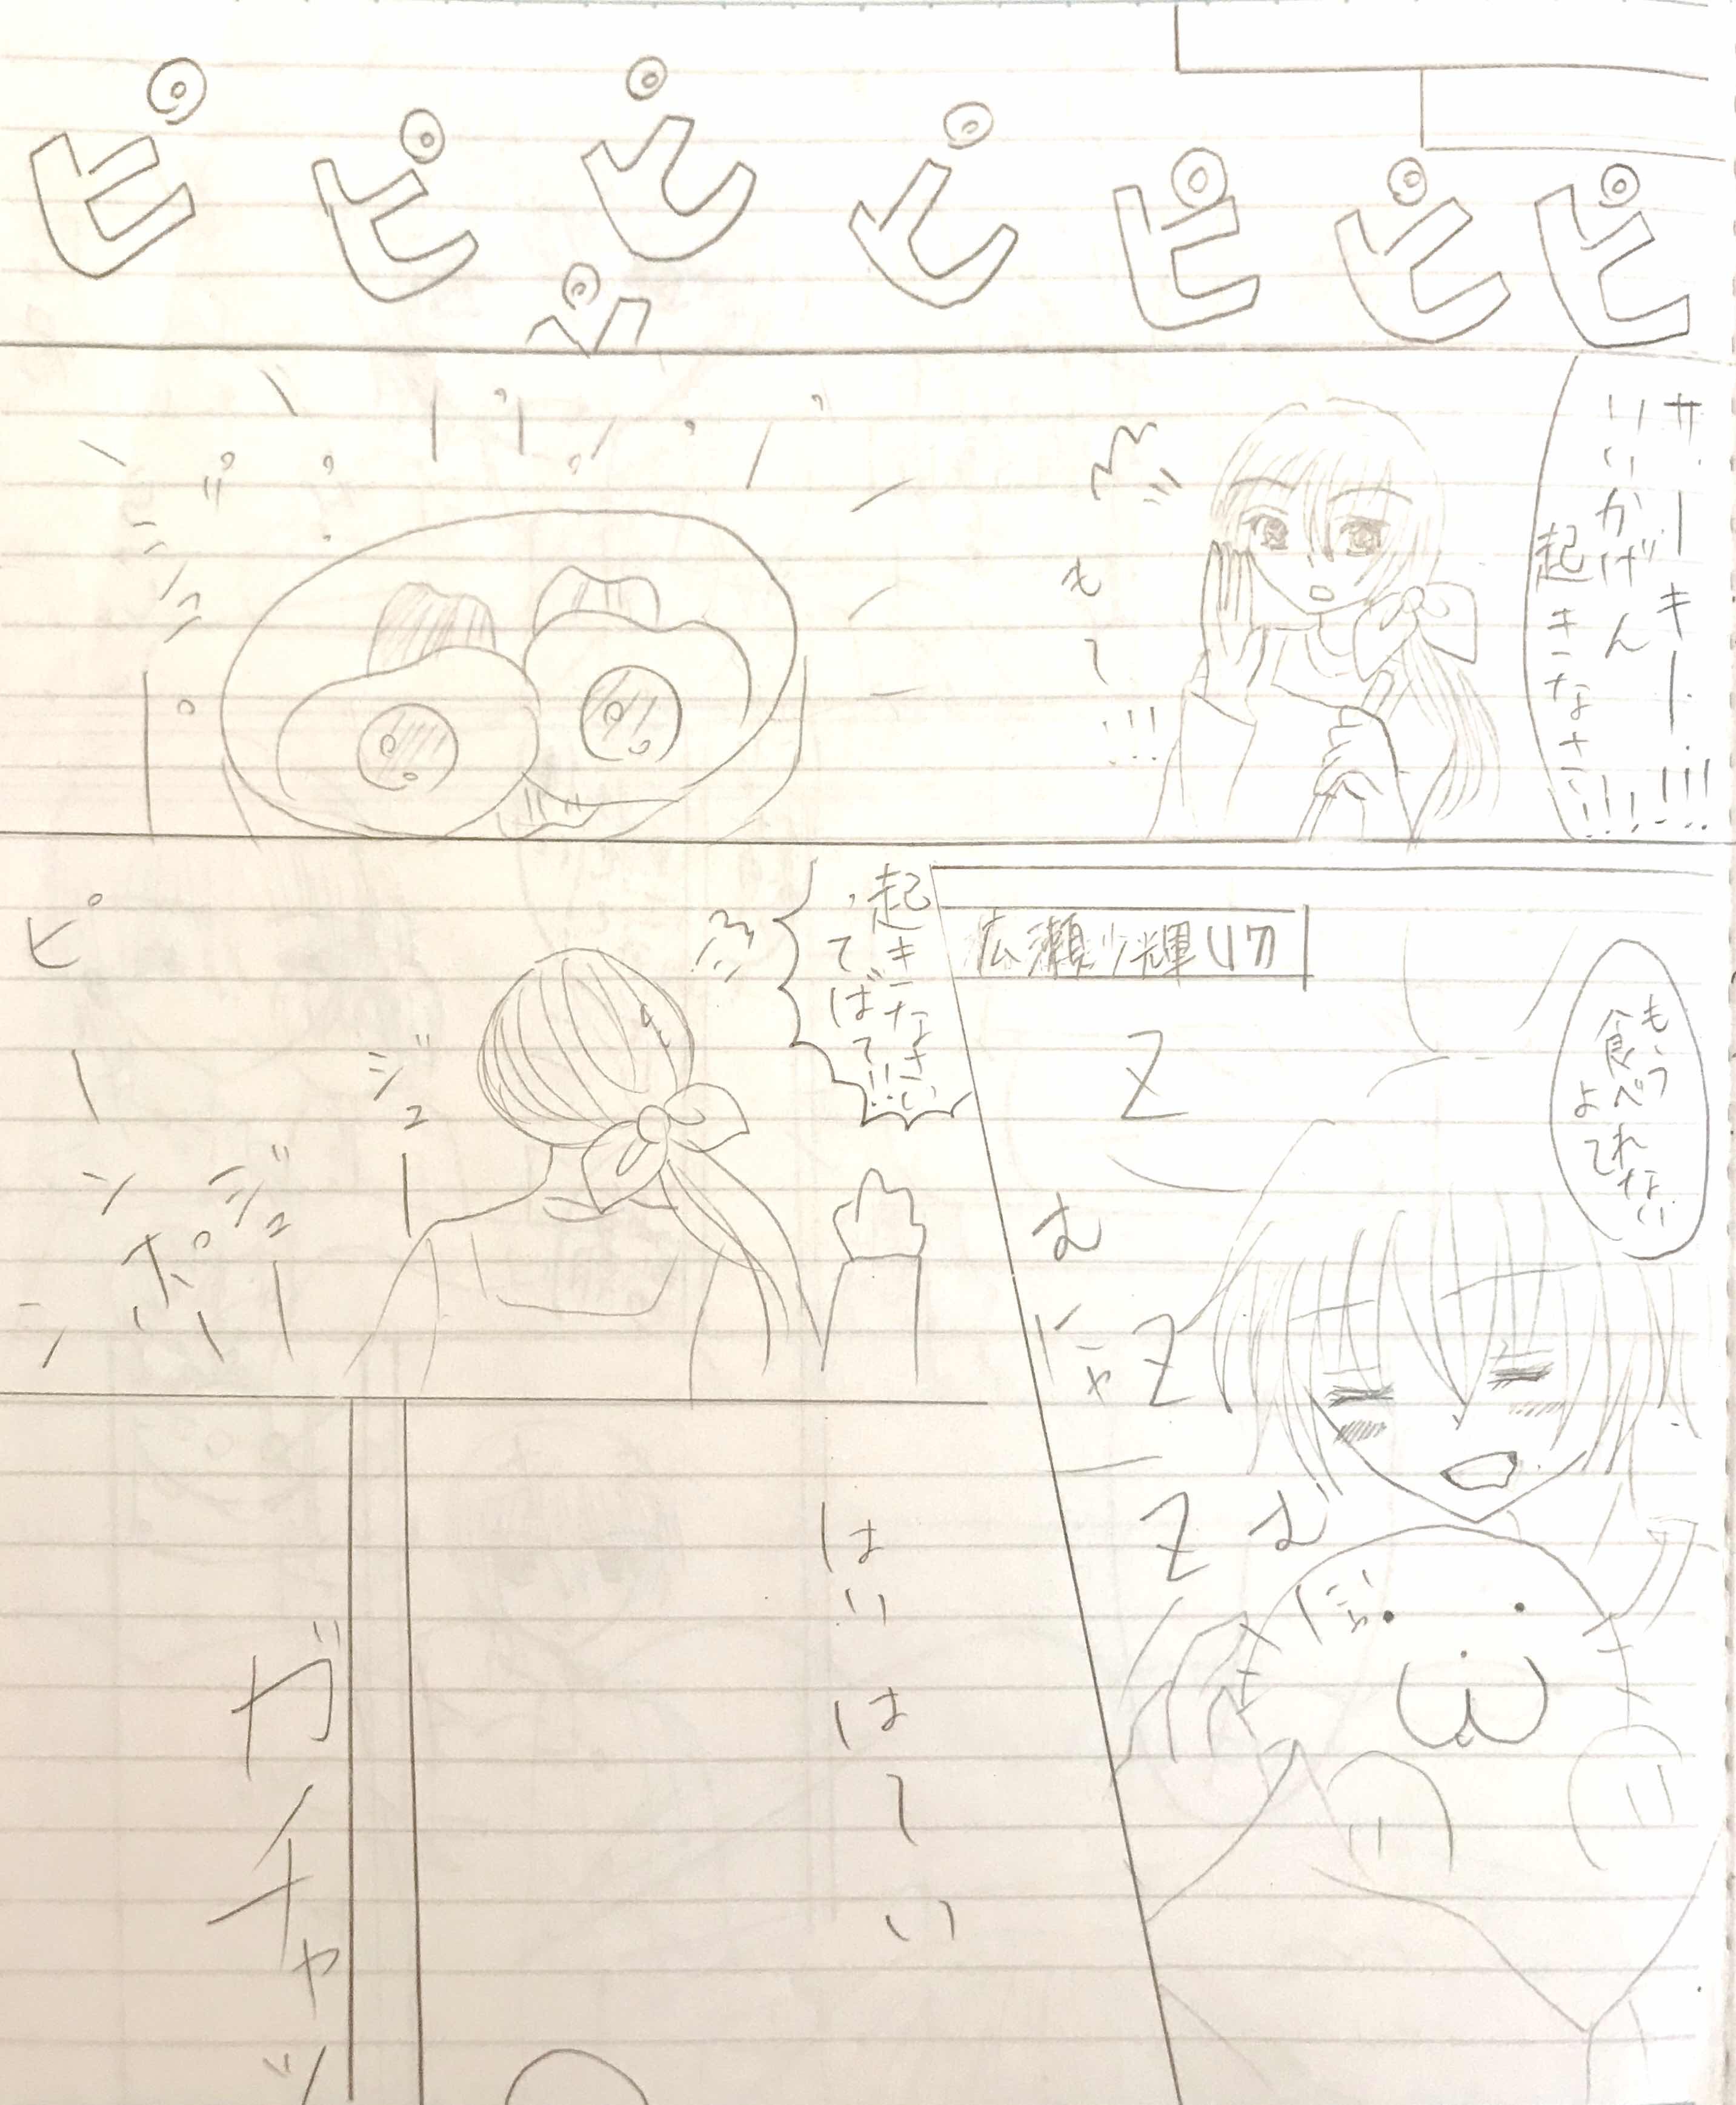 ピピピピピピピ
ピ
サーーキー!!!
いいかげん
起きなさい!!!
もー!!!
ジュー
もうっ
食べれない
よて
広瀬沙輝(17)
Z
Z
Z
むにゃ
むにゃ
起きなさい
てばて!!
ジュー
ジュー
ピーン
ポーン
はい
はーい
ガチャッ